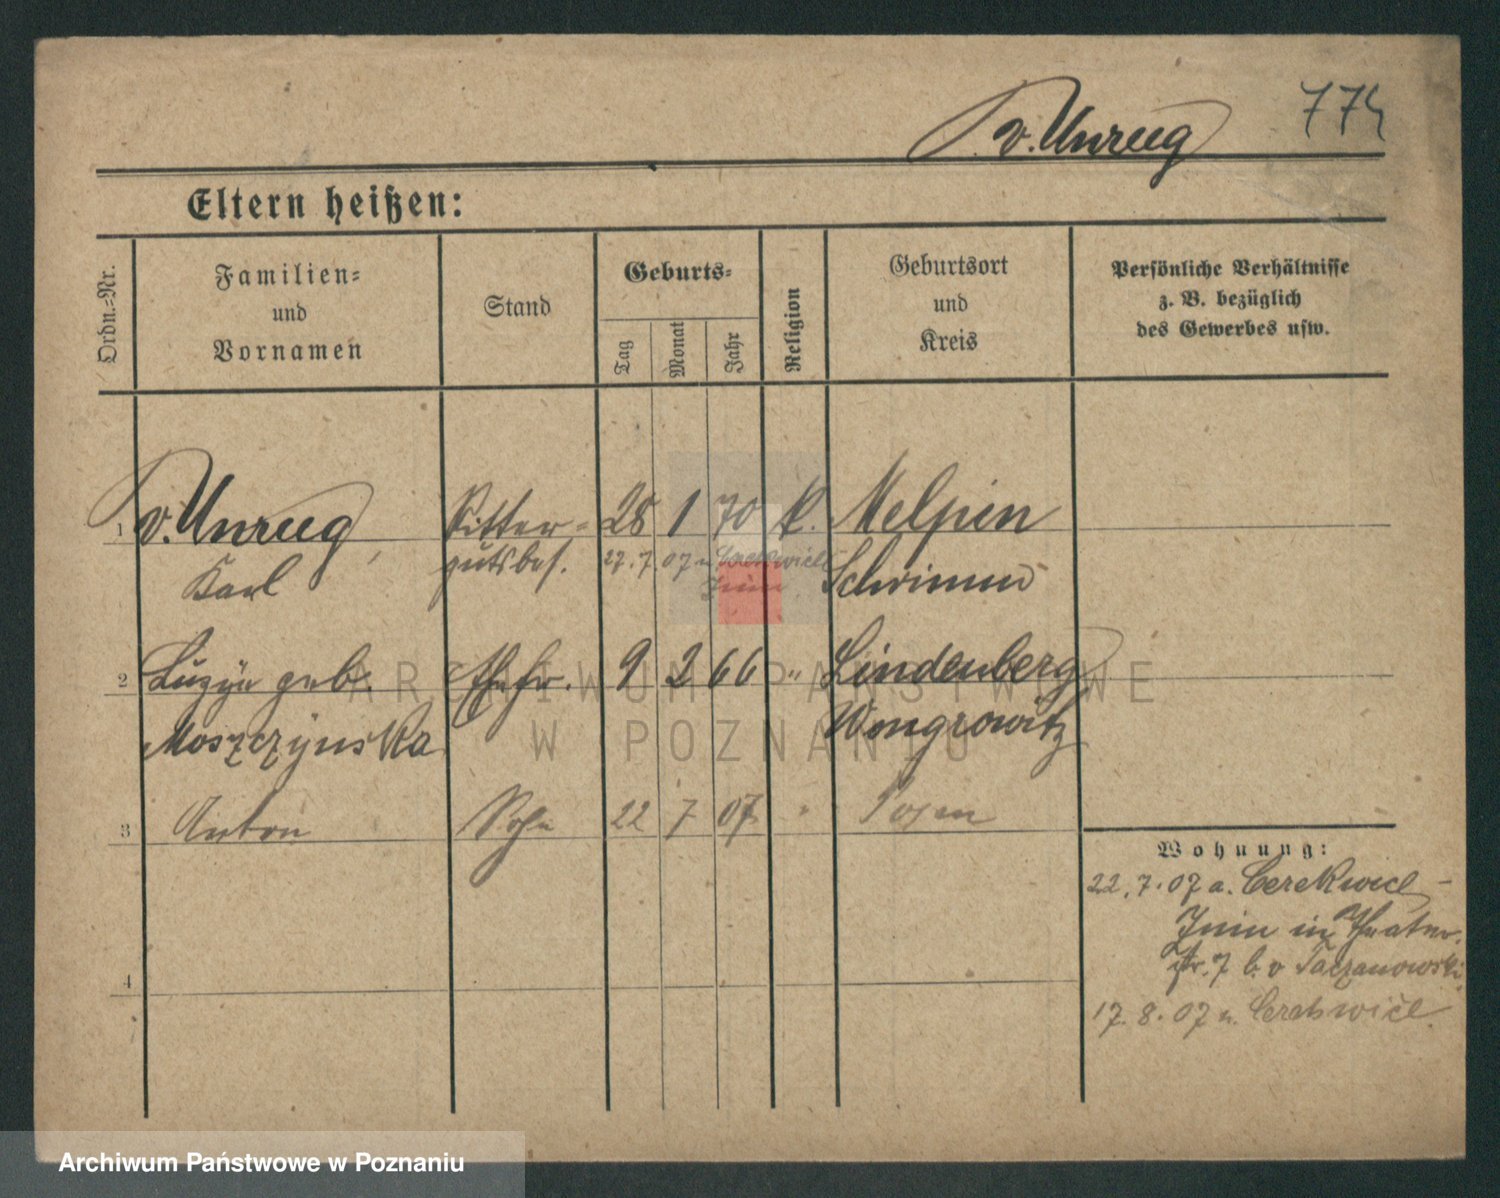 774
v. Unrug
Eltern heißen:
Ordn.=Nr.
Familien=
und
Vornamen
Stand
Geburts=
Tag
Monat
Jahr
Religion
Geburtsort
und
Kreis
Persönliche Verhältnisse
z. B. bezüglich
des Gewerbes usw.
1 v. Unrug, Ritter= 28 1 70 k. Melpin
Karl gutsbes. 27. 7. 07 n. Cerekwice Schrimm
Znin
2 Luzye geb. Ehefr. 9 2 66 " Lindenberg
Moszczynska Wongrowitz
3 Anton Sohn 22 7 07 " Posen
Wohnung:
22. 7. 07 a. Cerekwice -
Znin in Theater
str. 7 b. v Taczanowski
4
17. 8. 07 n. Cerekwice
ARCHIWUM PAŃSTWOWE
W POZNANIU
Archiwum Państwowe w Poznaniu